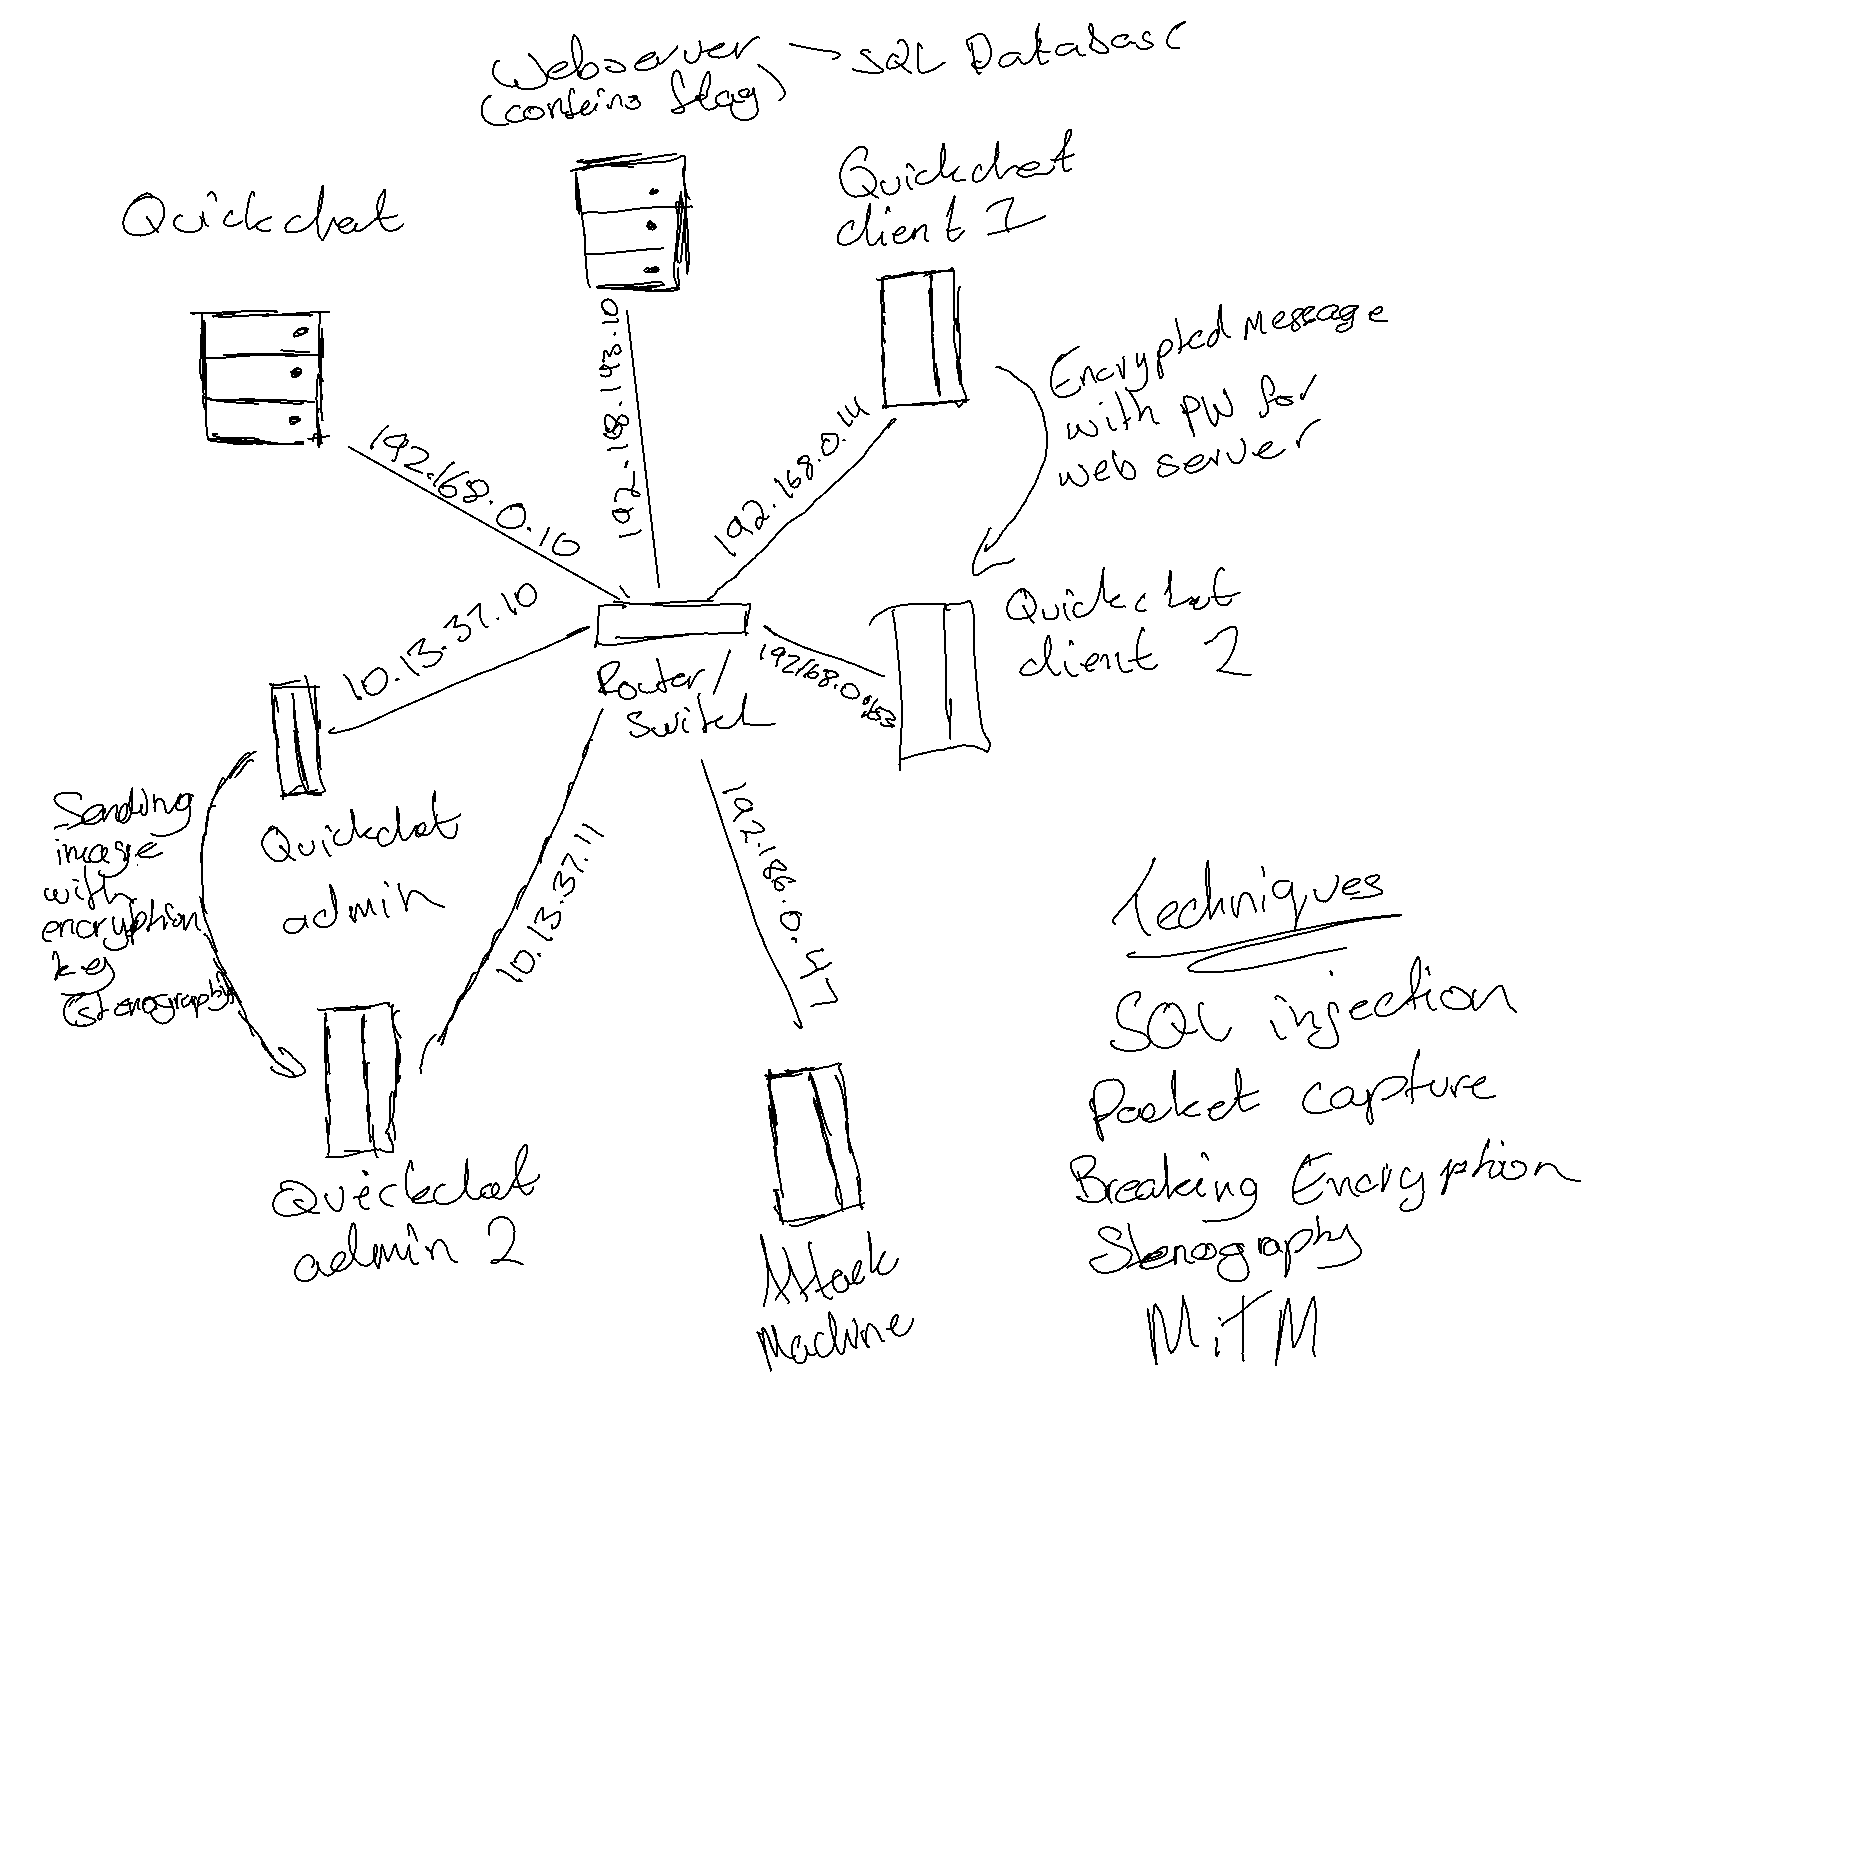 Webserver → SQL Database
(contains flag)
Quickchat
client 1
Quickchat
192.168.143.10
Encrypted Message
with PW for
web server
192.168.0.14
192.168.0.10
10.13.37.10
Quickchat
client 2
192.168.0.153
Router/
Switch
Sending
image
with
encryption
key
(stenography)
Quickchat
admin
10.13.37.11
192.186.0.47
Quickchat
admin 2
Attack
Machine
Techniques
SQL injection
Packet capture
Breaking Encryption
Stenography
MiTM